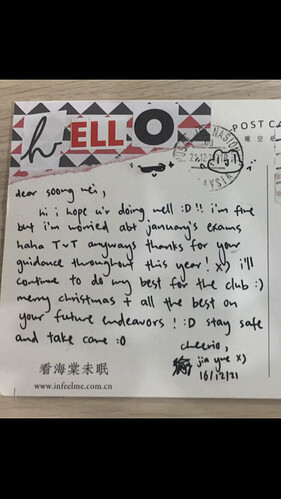 hELLO
POST CA
dear soong wei,
hi i hope u'r doing well :D !! i'm fine
but i'm worried abt january's exams
haha TvT anyways thanks for your
guidance throughout this year! x) i'll
continue to do my best for the club :)
merry christmas + all the best on
your future endeavors! :D stay safe
and take care :O
cheerio,
jia yue x)
16/12/21
看海棠未眠
www.infeelme.com.cn